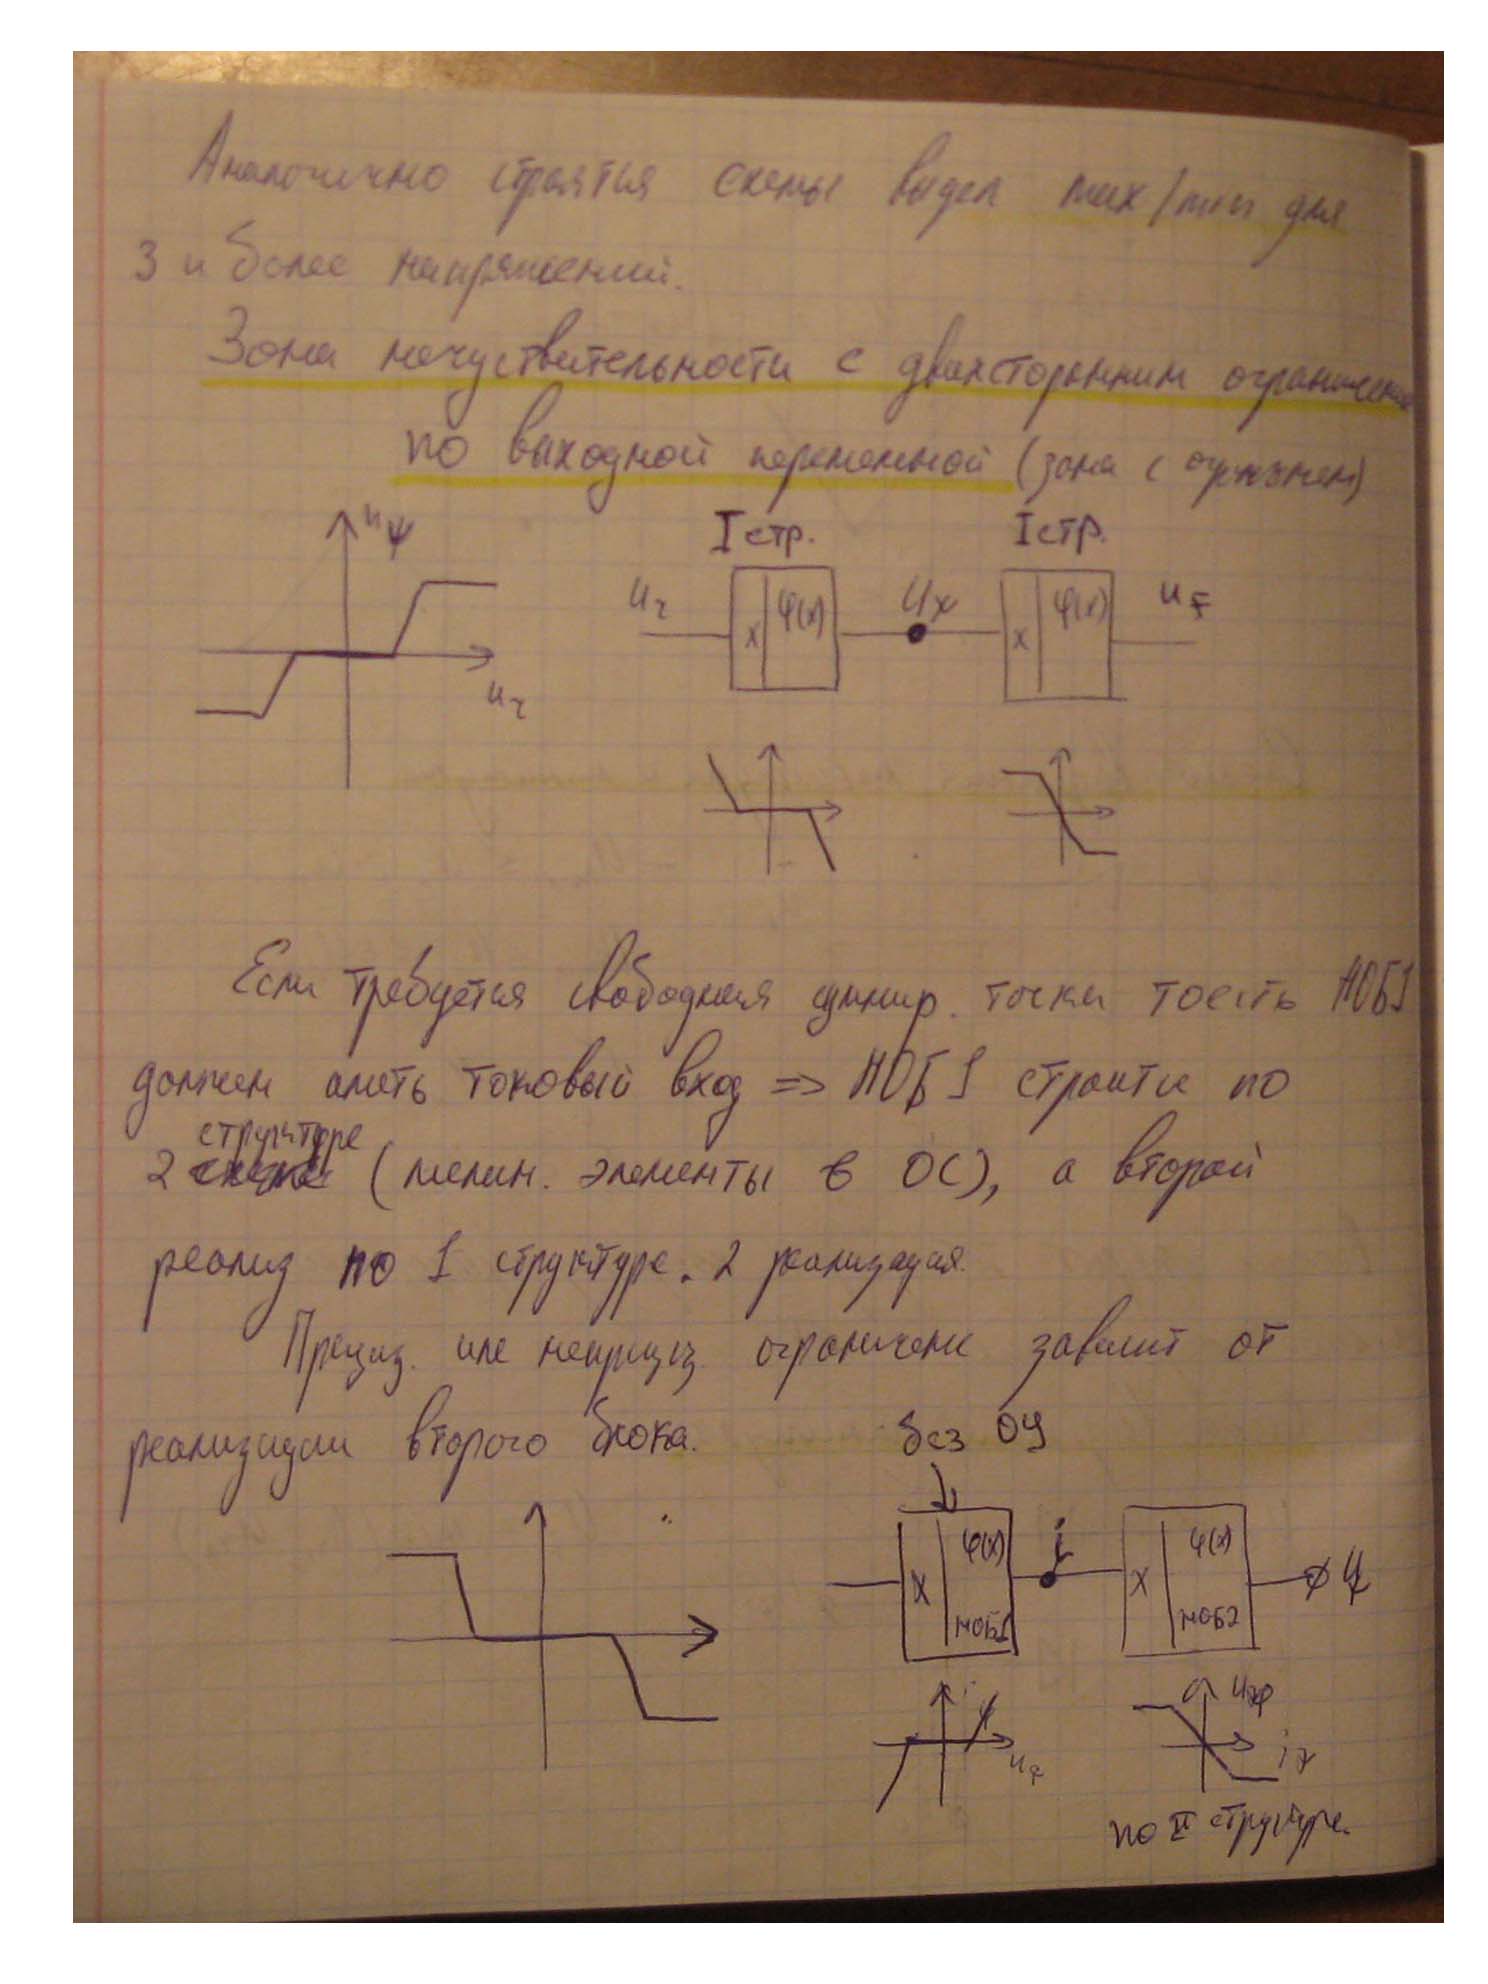 Аналогично строятся схемы выдел max/min для
3 и более напряжений.
Зона нечуствительности с двухсторонним ограничением
по выходной переменной (зона с огр
I стр.
I стр.
uψ
u
x
φ(x)
x
φ(x)
Если требуется свободная суммир. точка тоесть НОБ1
должен иметь токовый вход => НОБ1 строится по
структуре
2 (нелин. элементы в ОС), а второй
реализ по 1 структуре. 2 реализация.
Прециз. или непрециз. ограничение зависит от
реализации второго блока.
без ОУ
x
φ(x)
НОБ1
i
x
φ(x)
НОБ2
по II структуре.